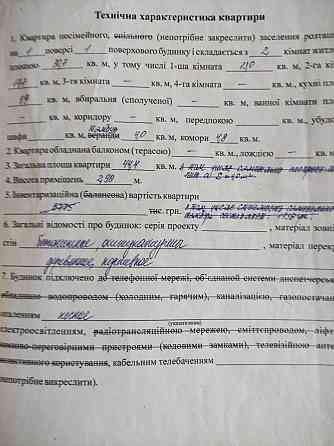 Технічна характеристика квартири
1. Квартира посімейного, спільного (непотрібне закреслити) заселення розташ
на 1 поверсі 1 поверхового будинку і складається з 2 кімнат жит
площею кв. м, у тому числі 1-ша кімната кв. м, 2-га кі
кв. м, 3-тя кімната — кв. м, 4-та кімната — кв. м, ку
кв. м, вбиральня (сполученої) — кв. м, ванної кімнати пл
— кв. м, коридору — кв. м, передпокою кв. м, убу
шафи кв. м, веранди 4,0 кв. м, комори 4,8 кв. м.
2. Квартира обладнана балконом (терасою) — кв. м., лоджією кв. м
3. Загальна площа квартири 44,4 кв. м.
4. Висота приміщень 2,90 м.
5. Інвентаризаційна (балансова) вартість квартири
тис. грн.
6. Загальні відомості про будинок: серія проекту , матеріал зовні
стін , матеріал перекр
7. Будинок підключено до телефонної мережі, об'єднаної системи диспетчерськ
обладнано водопроводом (холодним, гарячим), каналізацією, газопостачан
опаленням
(указати яким)
електроосвітленням, радіотрансляційною мережею, сміттєпроводом, ліфт
переговорними пристроями (кодовими замками), телевізійною анте
колективного користування, кабельним телебаченням
(непотрібне викреслити).